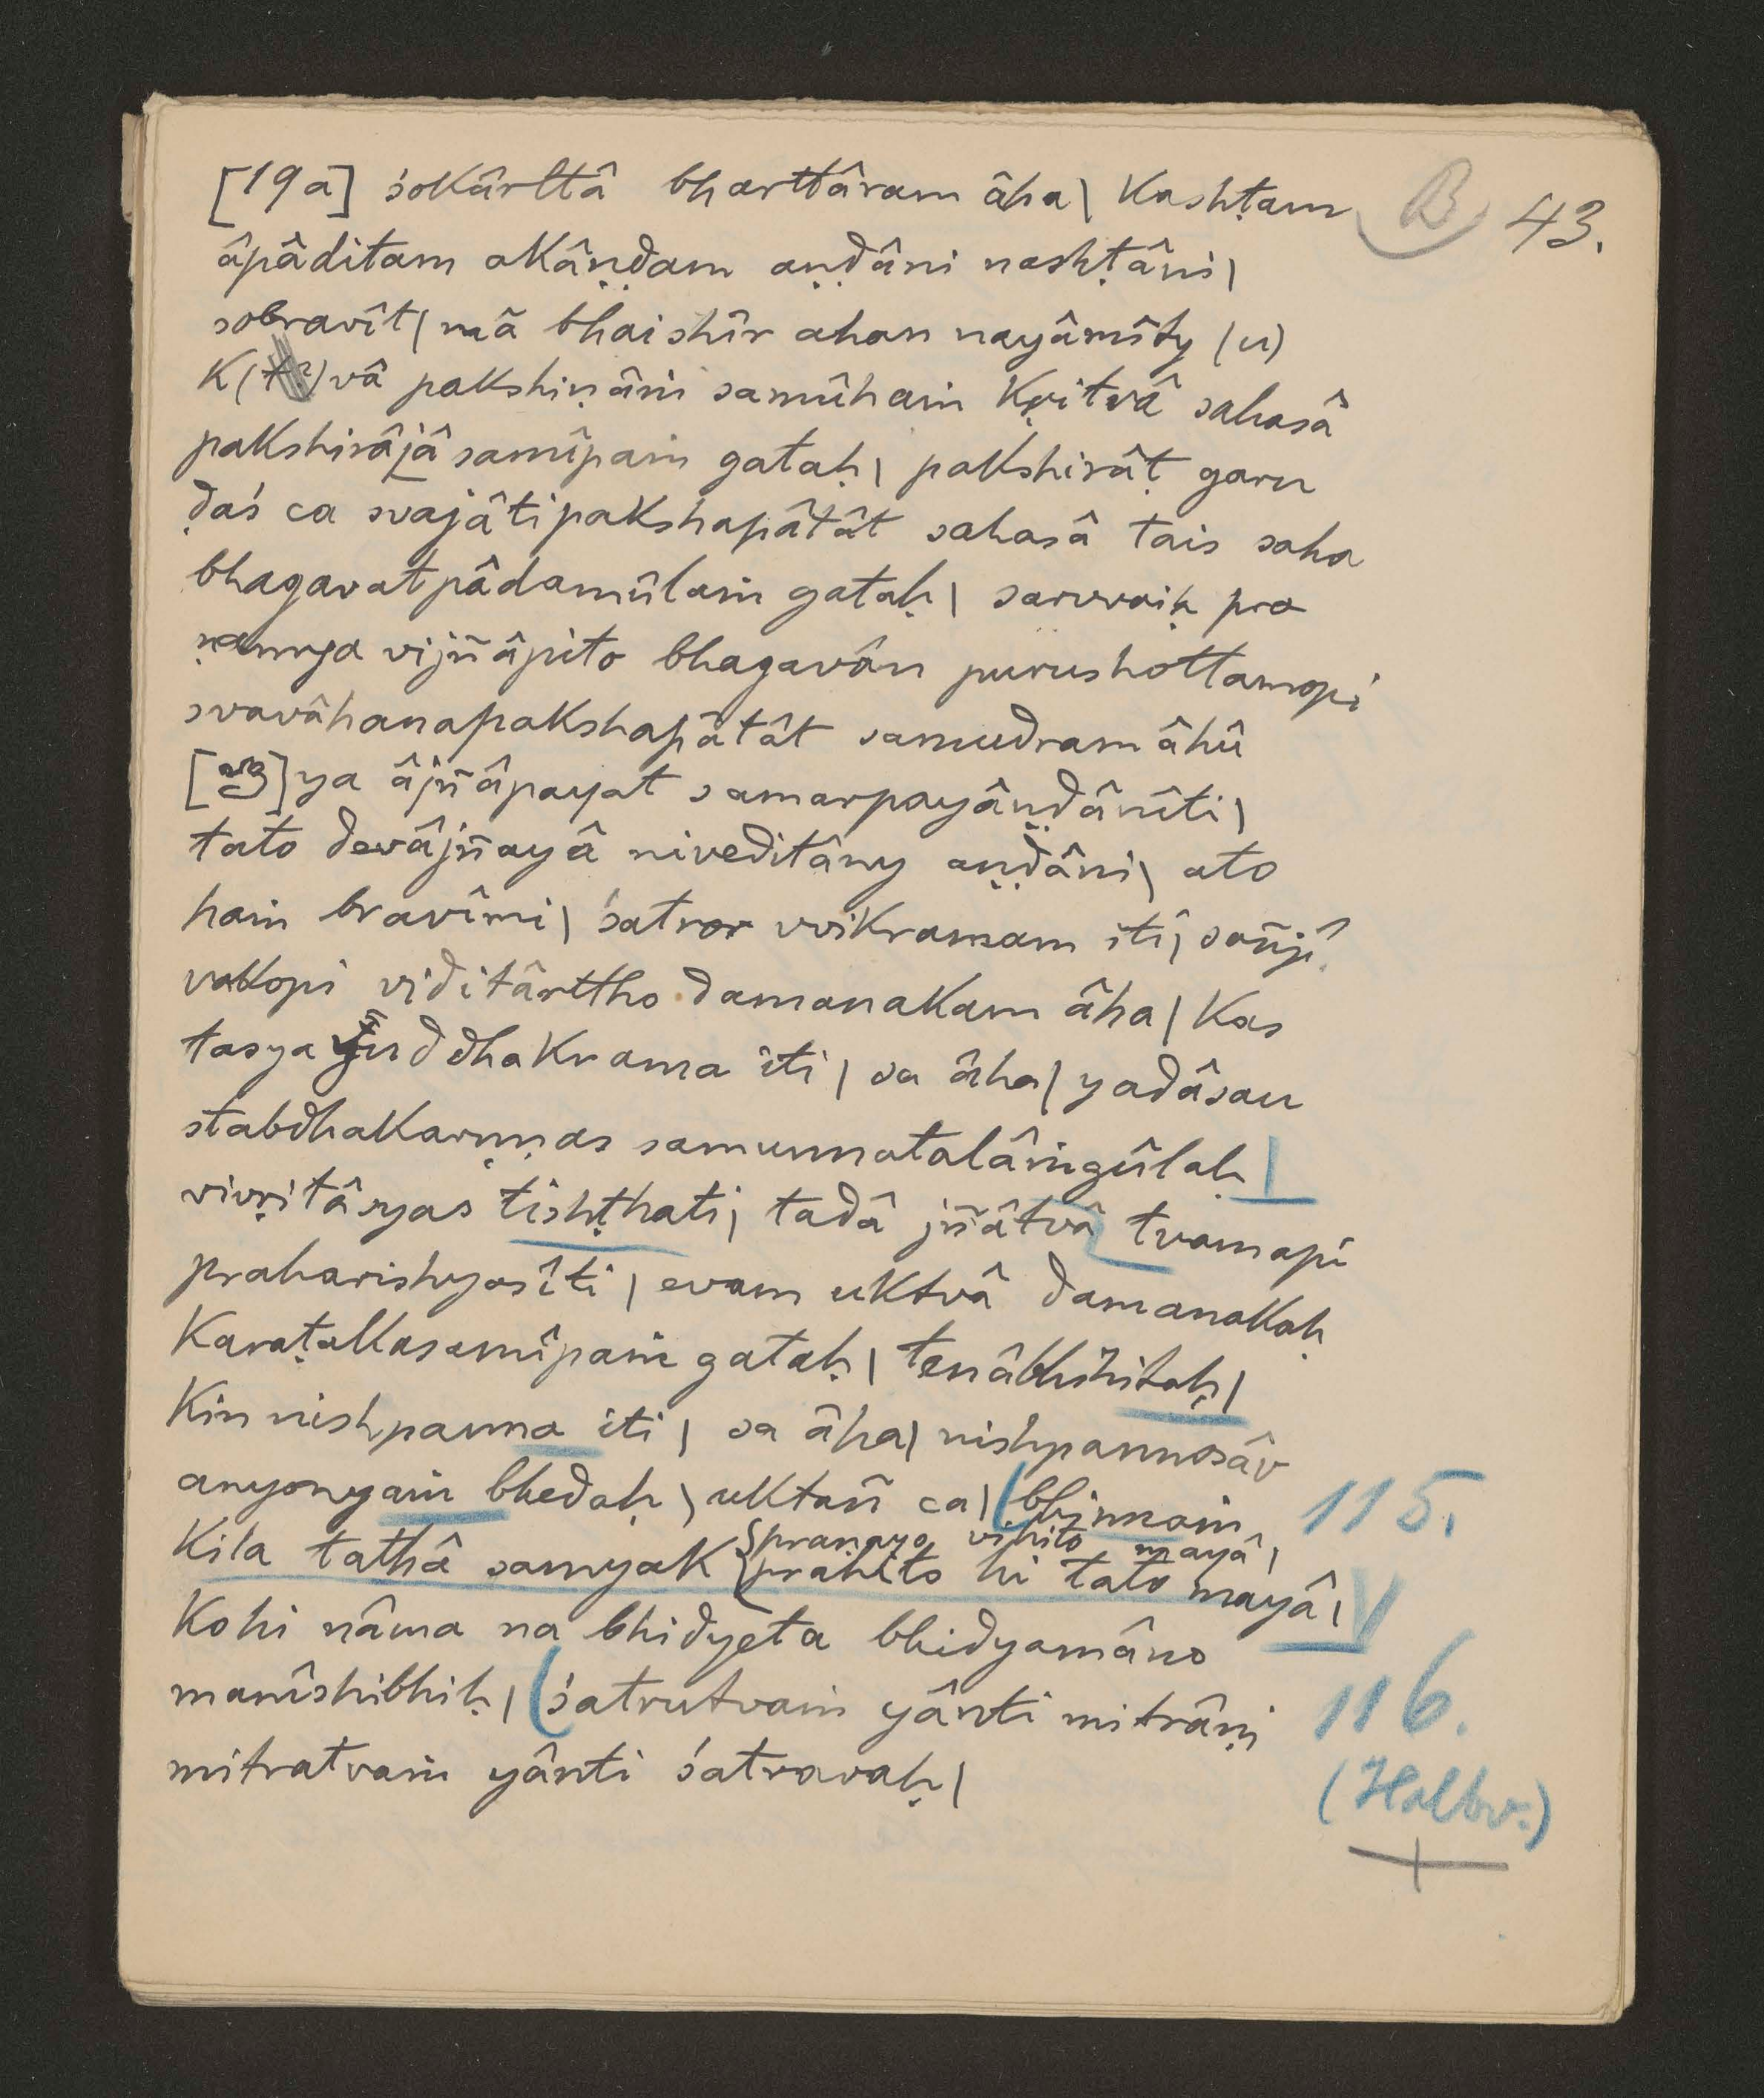 B 43.
[19a] śokârttâ bharttâram âha| kashṭam
âpâditam akâṇḍam aṇḍâni nashṭâni|
sobravît| mâ bhaishîr ahan nayâmîty (u)
k(t?)vâ pakshiṇâṁ samûhaṁ kṛitvâ sahasâ
pakshirâjâsamîpaṁ gataḥ| pakshirâṭ garu
ḍaś ca svajâtipakshapâtât sahasâ tais saha
bhagavatpâdamûlaṁ gataḥ| sarvvaiḥ pra
ṇamya vijñâpito bhagavân purushottamopi
svavâhanapakshapâtât samudram âhû
ya âjñâpayat samarpayâṇḍânîti|
tato devâjñayâ niveditâny aṇḍâni| ato
haṁ bravîmi| śatror vvikramam iti| sañjî
vakopi viditârttho damanakam âha| kas
tasya yuddhakrama iti| sa âha| yadâsau
stabdhakarṇṇas samunnatalâṁgûlaḥ|
vivṛitâsyas tishṭhati| tadâ jñâtvâ tvamapi
praharishyasîti| evam uktvâ damanakaḥ
karaṭakasamîpaṁ gataḥ| tenâbhihitaḥ|
kin nishpanna iti| sa âha| nishpannosâv
anyonyaṁ bhedaḥ| uktañ ca| (bhinnaṁ 115.
praṇayo vihito mayâ|
kila tathâ samyak prahito hi tato mayâ|
kohi nâma na bhidyeta bhidyamâno
manîshibhiḥ| (śatrutvaṁ yânti mitrâṇi 116.
mitratvaṁ yânti śatravaḥ| (Halbv.)